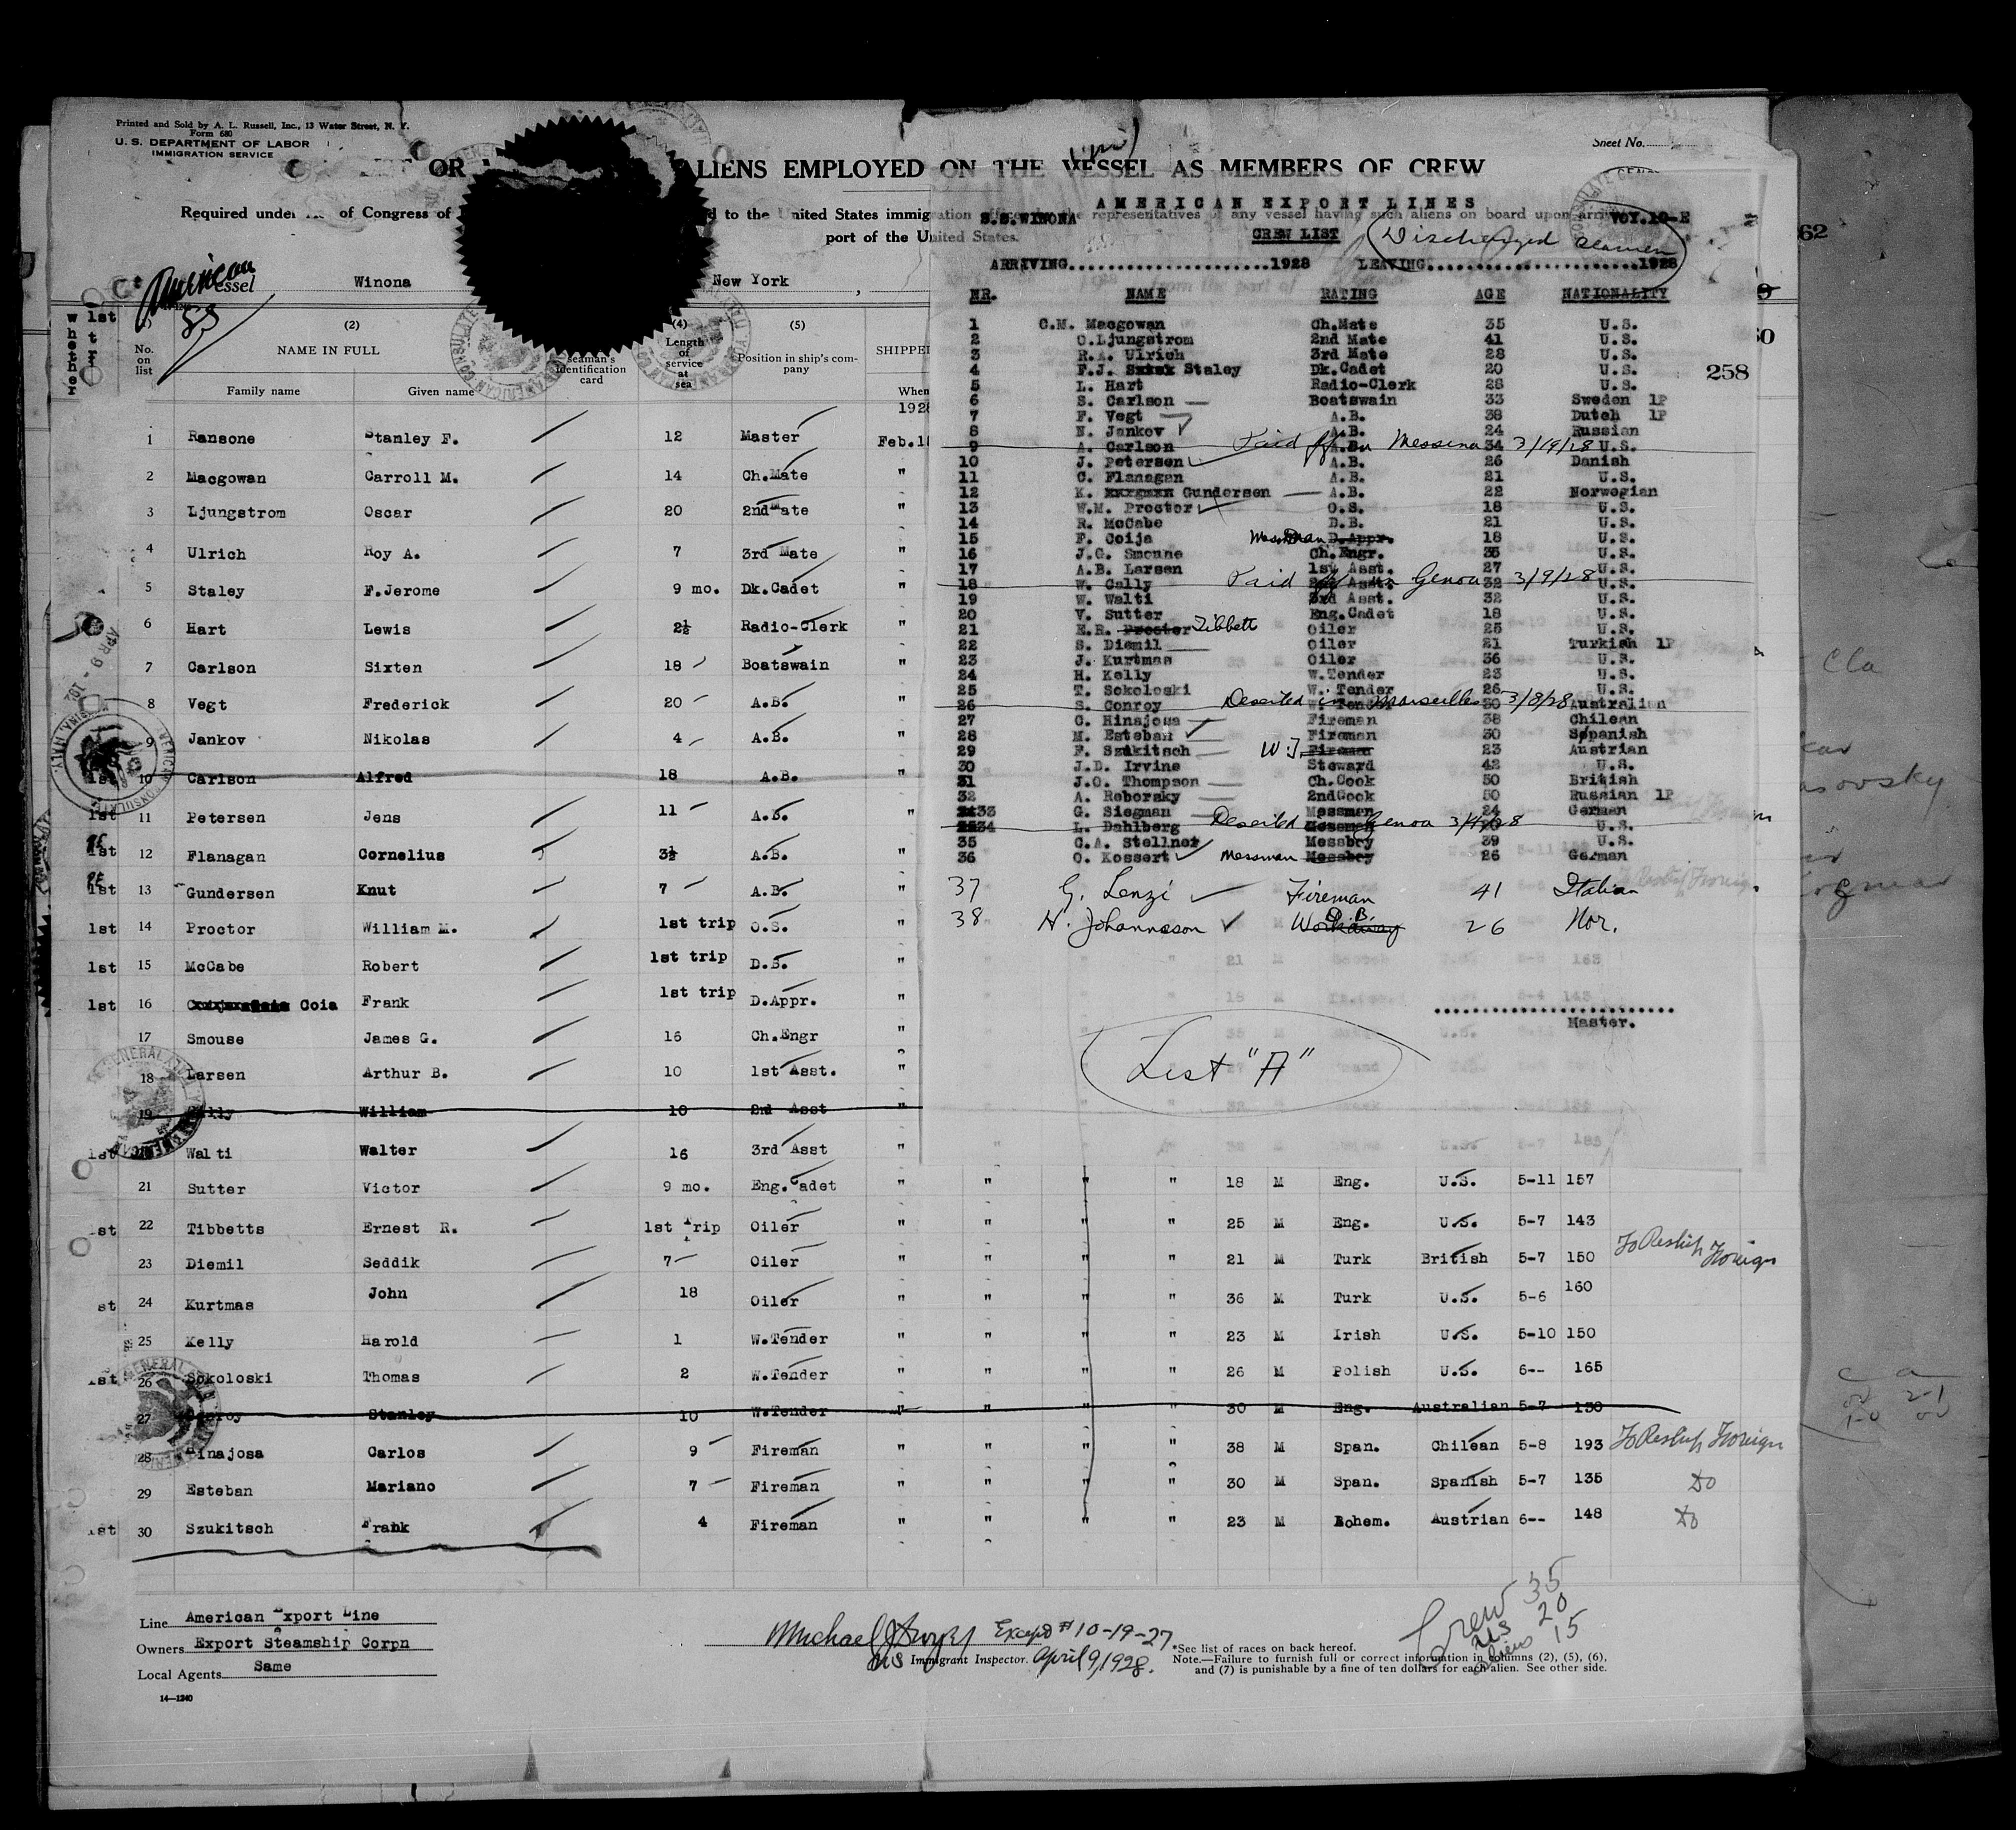 Printed and Sold by A. L. Russell, Inc., 13 Water Street, N. Y.
Form 680
U. S. DEPARTMENT OF LABOR
IMMIGRATION SERVICE
Sheet No.
OR ALIENS EMPLOYED ON THE VESSEL AS MEMBERS OF CREW
Required under of Congress of d to the United States immigration representatives of any vessel having such aliens on board upon
port of the United States.
American
Vessel Winona New York ,
(2) (4) (5)
No. on list NAME IN FULL seaman's Identification card Length of service at sea Position in ship's company SHIPPED
Family name Given name When
whether 1st
1928
1 Ransone Stanley F. 12 Master Feb.1
2 Macgowan Carroll M. 14 Ch.Mate "
3 Ljungstrom Oscar 20 2nd Mate "
4 Ulrich Roy A. 7 3rd Mate "
5 Staley F.Jerome 9 mo. Dk.Cadet "
6 Hart Lewis 2½ Radio-Clerk "
7 Carlson Sixten 18 Boatswain "
8 Vegt Frederick 20 A.B. "
9 Jankov Nikolas 4 A.B. "
1st 10 Carlson Alfred 18 A.B. "
1st 11 Petersen Jens 11 A.B. "
1st 12 Flanagan Cornelius 3½ A.B. "
1st 13 Gundersen Knut 7 A.B. "
1st 14 Proctor William M. 1st trip O.S. "
1st 15 McCabe Robert 1st trip D.B. "
1st 16 Coia Frank 1st trip D.Appr. "
17 Smouse James G. 16 Ch.Engr "
18 Larsen Arthur B. 10 1st Asst. "
19 Cally William 10 2nd Asst "
1st Walti Walter 16 3rd Asst "
21 Sutter Victor 9 mo. Eng.Cadet " " " " 18 M Eng. U.S. 5-11 157
st 22 Tibbetts Ernest R. 1st Trip Oiler " " " " 25 M Eng. U.S. 5-7 143
23 Diemil Seddik 7 Oiler " " " " 21 M Turk British 5-7 150 To Reship Foreign
st 24 Kurtmas John 18 Oiler " " " " 36 M Turk U.S. 5-6 160
25 Kelly Harold 1 W.Tender " " " " 23 M Irish U.S. 5-10 150
1st 26 Sokoloski Thomas 2 W.Tender " " " " 26 M Polish U.S. 6-- 165
27 Conroy Stanley 10 W.Tender " " " " 30 M Eng. Australian 5-7 130
28 Hinajosa Carlos 9 Fireman " " " " 38 M Span. Chilean 5-8 193 To Reship Foreign
29 Esteban Mariano 7 Fireman " " " " 30 M Span. Spanish 5-7 135 Do
1st 30 Szukitsch Frank 4 Fireman " " " " 23 M Bohem. Austrian 6-- 148 Do
AMERICAN EXPORT LINES
S.S.WINONA VOY.10-E
CREW LIST Discharged seamen
ARRIVING....................1928 LEAVING........................1928
NR. NAME RATING AGE NATIONALITY
1 C.M. Macgowan Ch.Mate 35 U.S.
2 O.Ljungstrom 2nd Mate 41 U.S.
3 R.A. Ulrich 3rd Mate 28 U.S.
4 F.J. Staley Dk.Cadet 20 U.S.
5 L. Hart Radio-Clerk 28 U.S.
6 S. Carlson Boatswain 33 Sweden 1P
7 F. Vegt A.B. 38 Dutch 1P
8 N. Jankov A.B. 24 Russian
9 A. Carlson A.B. 34 U.S. Paid off in Messina 3/19/28
10 J. Petersen A.B. 26 Danish
11 C. Flanagan A.B. 21 U.S.
12 K. Gundersen A.B. 22 Norwegian
13 W.M. Proctor O.S. 18 U.S.
14 R. McCabe D.B. 21 U.S.
15 F. Coija Messman D.Appr. 18 U.S.
16 J.G. Smouse Ch.Engr. 35 U.S.
17 A.B. Larsen 1st Asst. 27 U.S.
18 W. Cally 2nd Asst. 32 U.S. Paid off in Genoa 3/9/28
19 W. Walti 3rd Asst. 32 U.S.
20 V. Sutter Eng.Cadet 18 U.S.
21 E.R. Proctor Tibbett Oiler 25 U.S.
22 S. Diemil Oiler 21 Turkish 1P
23 J. Kurtmas Oiler 36 U.S.
24 H. Kelly W.Tender 23 U.S.
25 T. Sokoloski W. Tender 26 U.S.
26 S. Conroy W. Tender 30 Australian Deserted in Marseilles 3/8/28
27 C. Hinajosa Fireman 38 Chilean
28 M. Esteban Fireman 30 Spanish
29 F. Szukitsch W.T. Fireman 23 Austrian
30 J.D. Irvine Steward 42 U.S.
31 J.O. Thompson Ch.Cook 50 British
32 A. Reborsky 2ndCook 50 Russian 1P
33 G. Siegman Messman 24 German
34 L. Dahlberg Messman U.S. Deserted Genoa
35 C.A. Stellner Messboy 39 U.S.
36 O. Kossert Messman Messboy 26 German
37 G. Lenzi Fireman 41 Italian
38 H. Johannsson D.B. Workaway 26 Nor.
Master.
List "A"
258
62
Cla
Line American Export Line
Owners Export Steamship Corpn
Local Agents Same
14—1240
Except # 10-19-27
Immigrant Inspector. April 9, 1928.
*See list of races on back hereof.
Note.—Failure to furnish full or correct information in columns (2), (5), (6),
and (7) is punishable by a fine of ten dollars for each alien. See other side.
Crew 35
US 20
Aliens 15